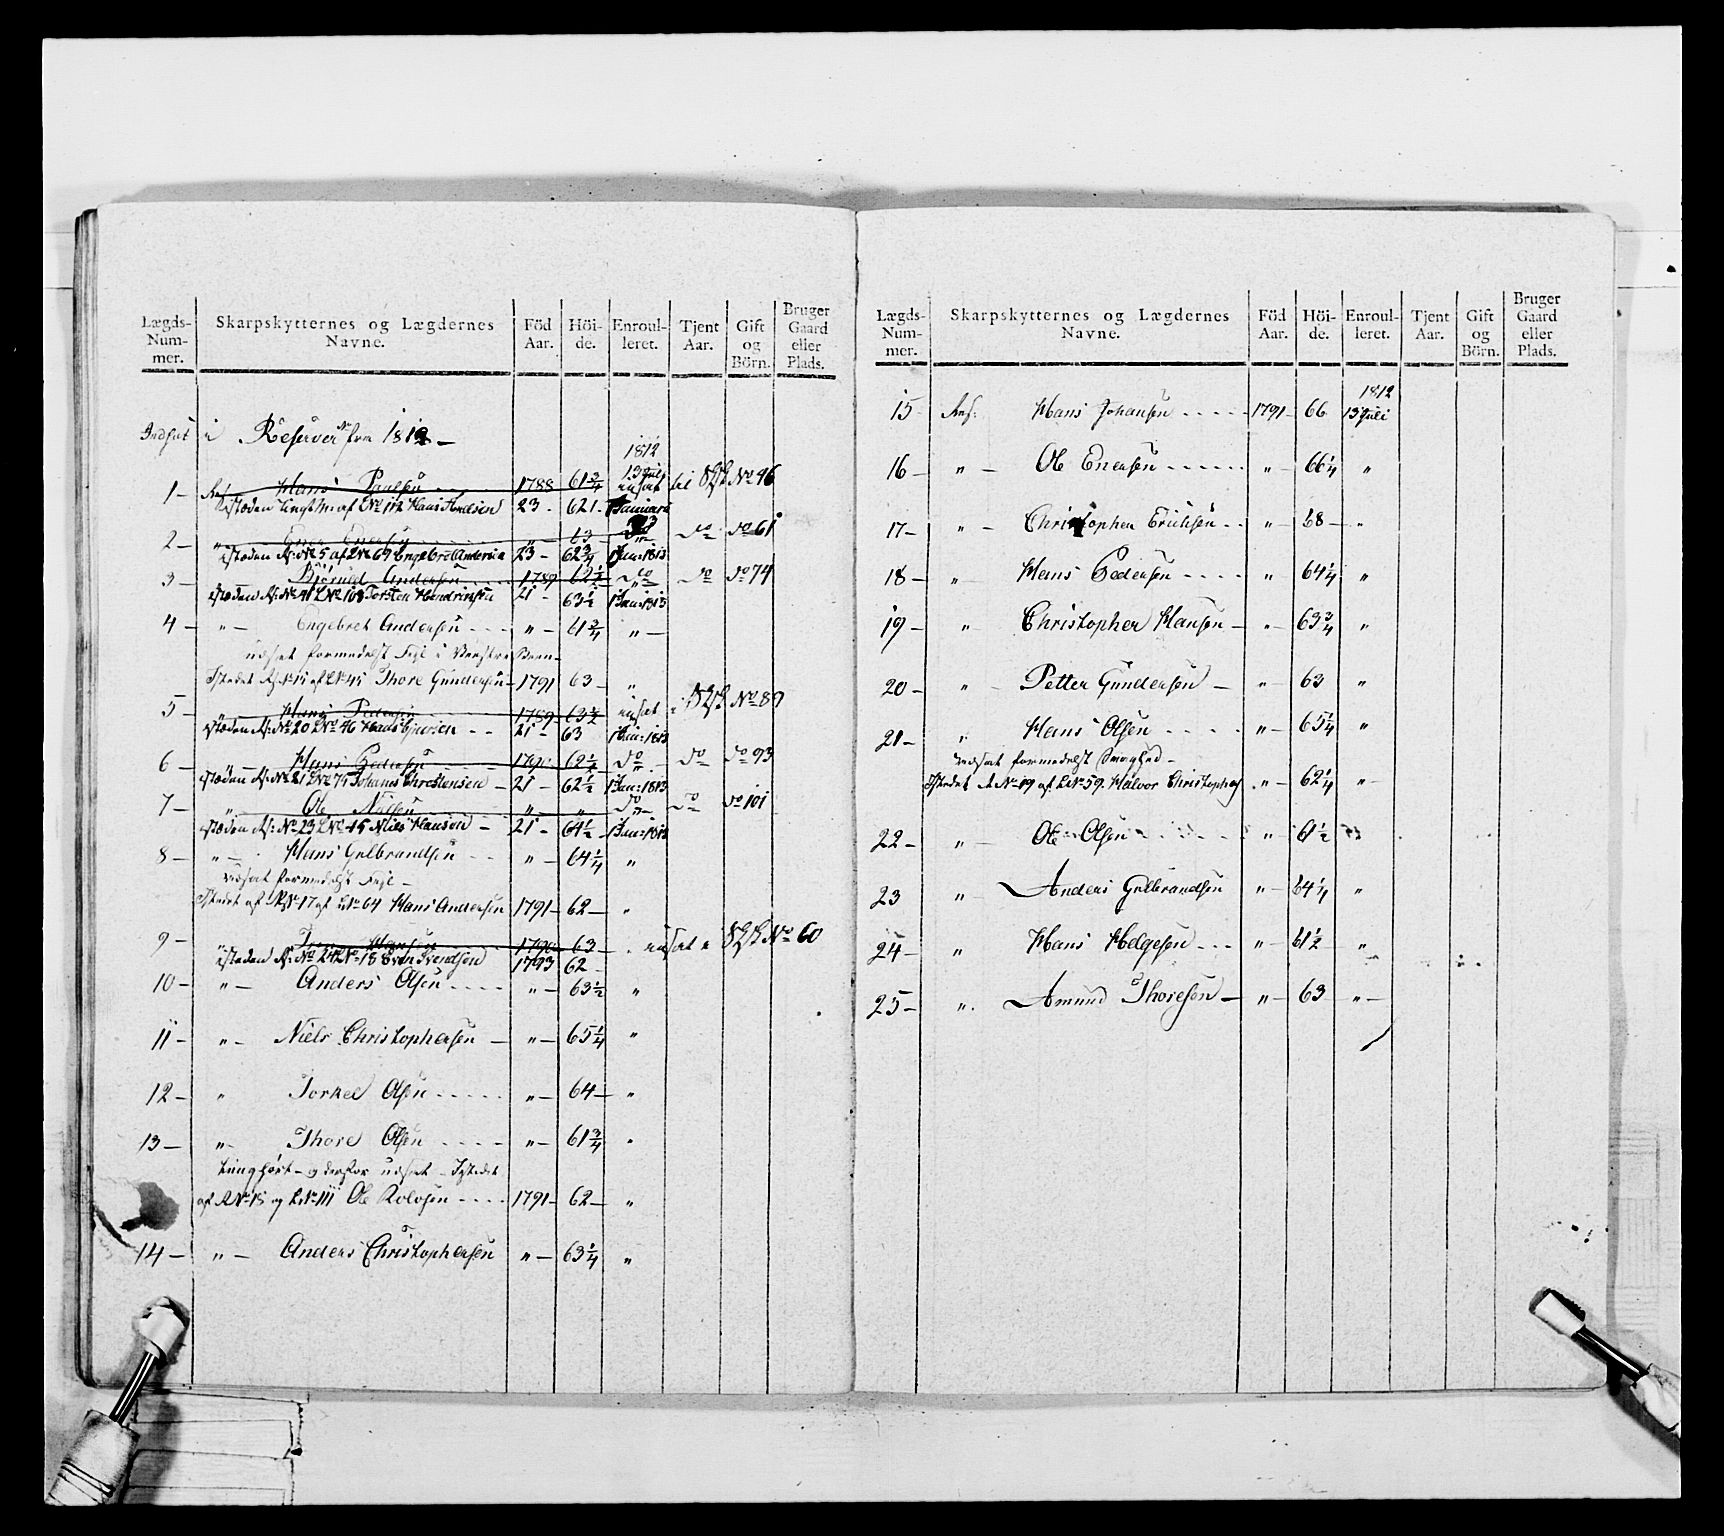 Lægds-Num-mer. Skarpskytternes og Lægdernes Navne. Föd Aar. Höi-de. Enroul-leret. Tjent Aar. Gift og Börn. Bruger Gaard eller Plads.
Indsat i Reserven fra 1812 —
1812
1 — Hans Paulsen 1788 61 3/4 13 Juli udsat til No 46
istæden af LNo 112 Hans 23 - 62 1 Januari
2 — " 63 do do do 61
istæden R: No 5 af LNo 69 Engebret Andersen 23 - 62 3/4 1 Jan: 1813
3 — Andersen 1789 62 1/2 do do do 74
istæden R: LNo 108 Torsten Hendrichsen 21 - 63 1/2 1 Jan: 1813
4 — " — Engebret Andersen " — 61 3/4 " —
udsat formedelst Fejl i Venstre Been -
Istedet R: No 15 af LNo 45 Thore Gundersen - 1791 63 — "
5 — Hans Pedersen 1789 63 1/2 udsat i No 89
istæden R: No 20 LNo 46 Hans 21 - 63 1 Jan: 1813
6 — Hans Pedersen 1790 62 1/4 do do do 93
istæden R: No 21 LNo 75 Johanes Christensen - 21 - 62 1/2 1 Jan: 1813
7 — " Ole Nielsen " " do do do 101
istæden R: No 23 LNo 15 Niels Hansen - 21 - 64 1/2 1 Jan: 1813
8 — " — Hans Gulbrandsen " — 64 1/4 "
udsat formedelst Fejl -
Istedet af RNo 17 af LNo 64 Hans Andersen 1791 - 62 — "
9 — Hansen 1790 63 — udsat i No 60
istæden R: No 24 LNo 18 Svendsen 1793 62 -
10 — " — Anders Olsen " — 63 1/2 "
11 — " — Niels Christophersen — " — 65 1/4 "
12 — " Torkel Olsen " — 64 — "
13 — " — Thore Olsen " — 61 3/4 "
tunghört - og derfor udsat - Istedet
af RNo 15 og LNo 111 Ole Rolvsen 1791 - 62 — "
14 — " — Anders Christophersen " — 63 1/4 "
Lægds-Num-mer. Skarpskytternes og Lægdernes Navne. Föd Aar. Höi-de. Enroul-leret. Tjent Aar. Gift og Börn. Bruger Gaard eller Plads.
1812
15 Res: Hans Johansen 1791 - 66 13 Juli
16 — " — Ole Enersen " — 66 1/4 "
17 — " — Christopher Erichsen " — 68 — "
18 — " Hans Pedersen " 64 1/4 "
19 — " Christopher Hansen — " — 63 3/4 "
20 — " — Petter Gundersen — " — 63 "
21 — " Hans Olsen " — 65 1/4 "
udsat formedelst Svaghed -
Istedet No 19 af LNo 59. Halvor Christophers " — 62 1/4 " -
22 — " — Ole Olsen " 61 1/2 "
23 " — Anders Gulbrandsen " — 64 1/4 "
24 — " Hans Helgesen " — 61 1/2 "
25 — " Amund Thoresen — " — 63 " —